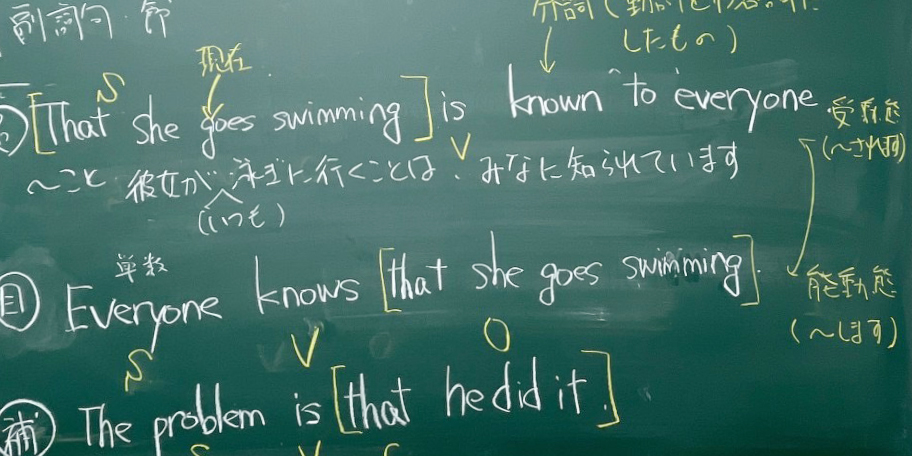 副詞句・節
分詞(動
したもの)
現在
S
[That she goes swimming] is known to everyone 受動態
V (〜されます)
〜こと 彼女が泳ぎに行くことは、みなに知られています
(いつも)
単数
目 Everyone knows [that she goes swimming]. 能動態
S V O (〜します)
補 The problem is [that he did it.]